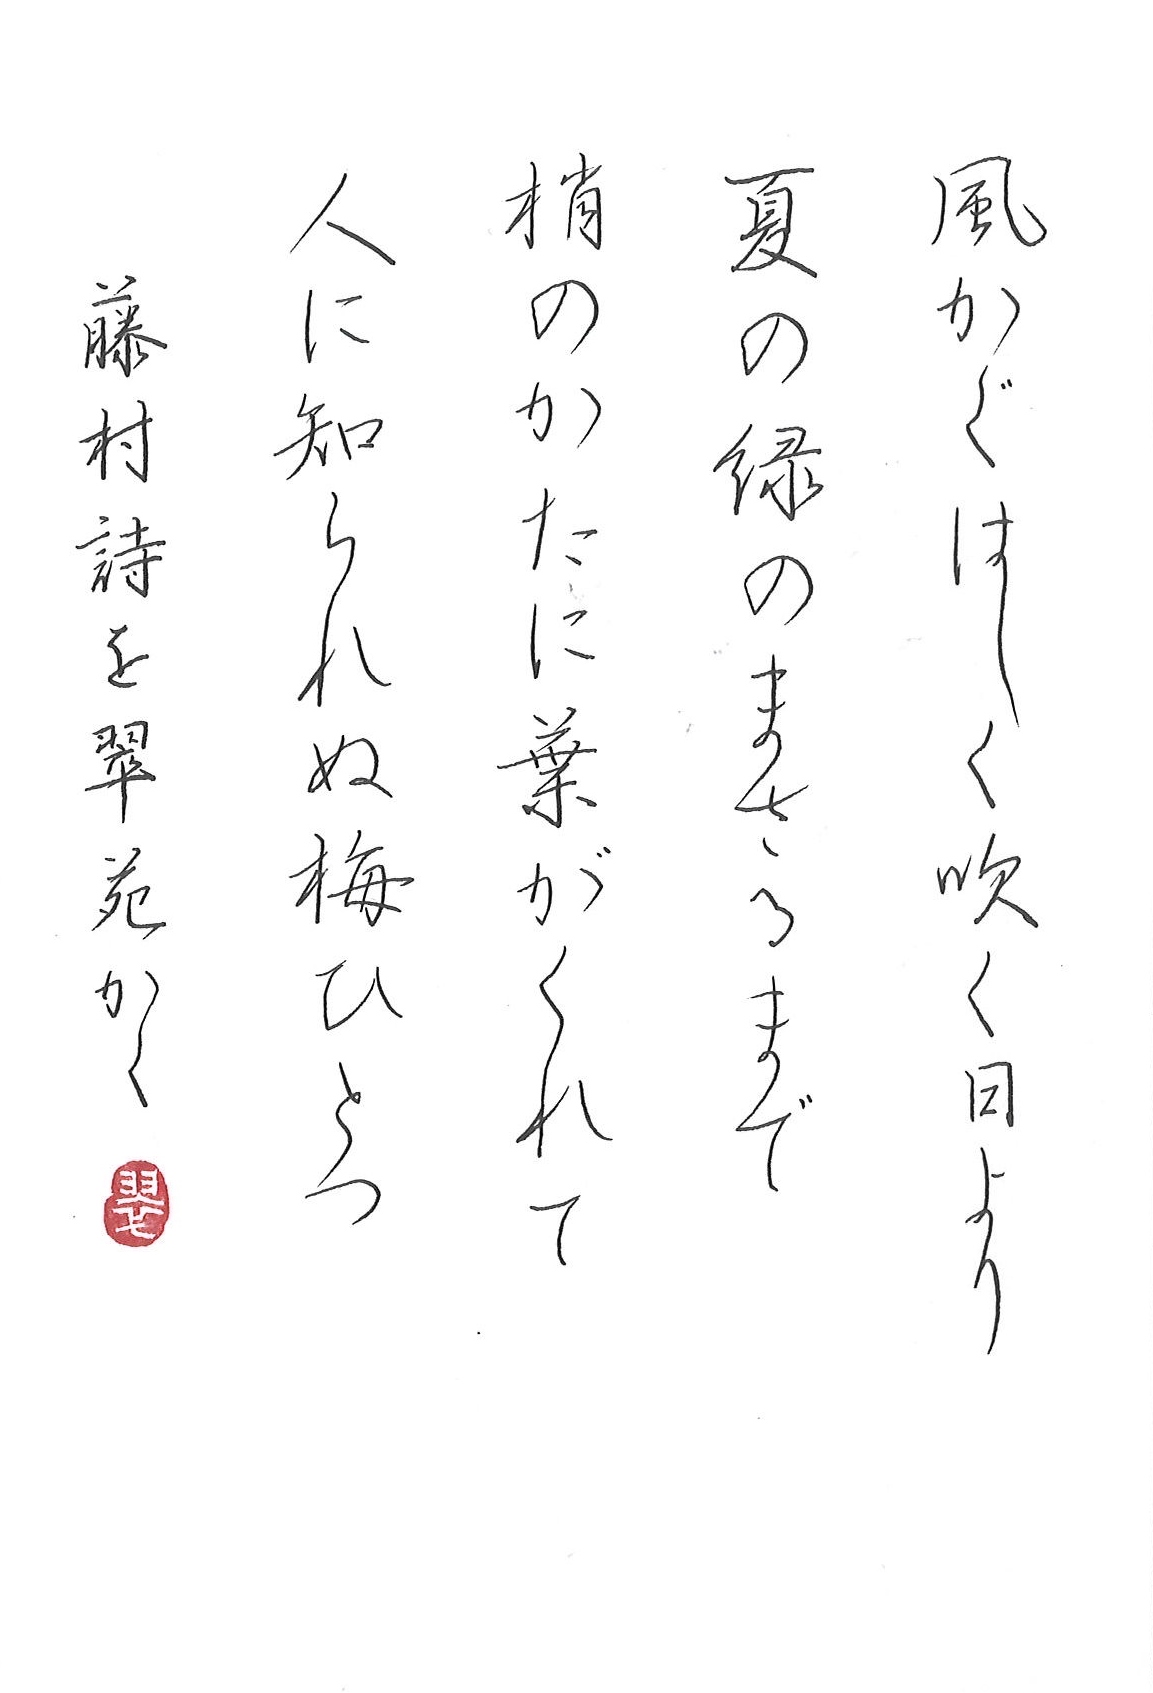 風かぐはしく吹く日より
夏の緑のまさるまで
梢のかたに葉がくれて
人に知られぬ梅ひとつ
藤村詩を翠苑かく
翠